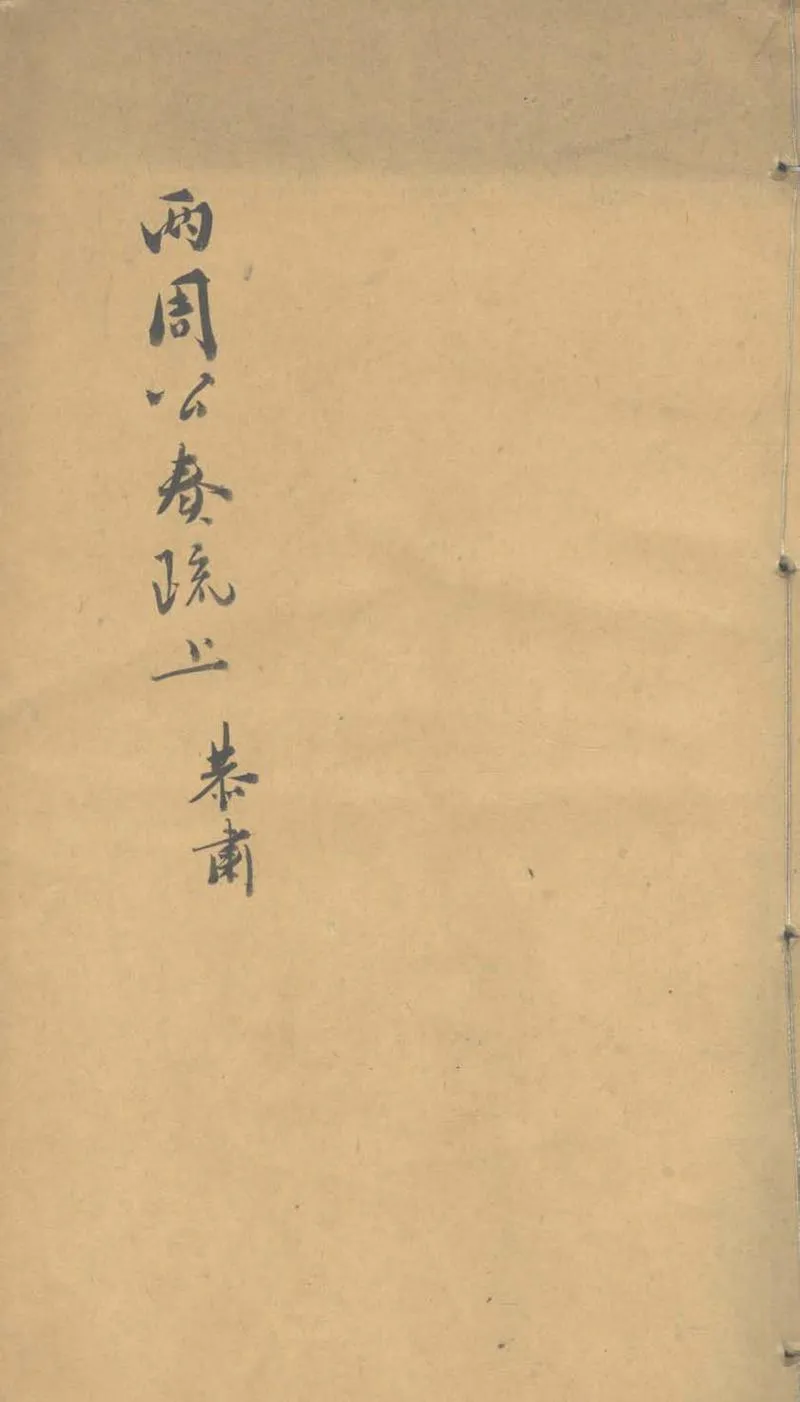 兩周公奏疏上
恭肅